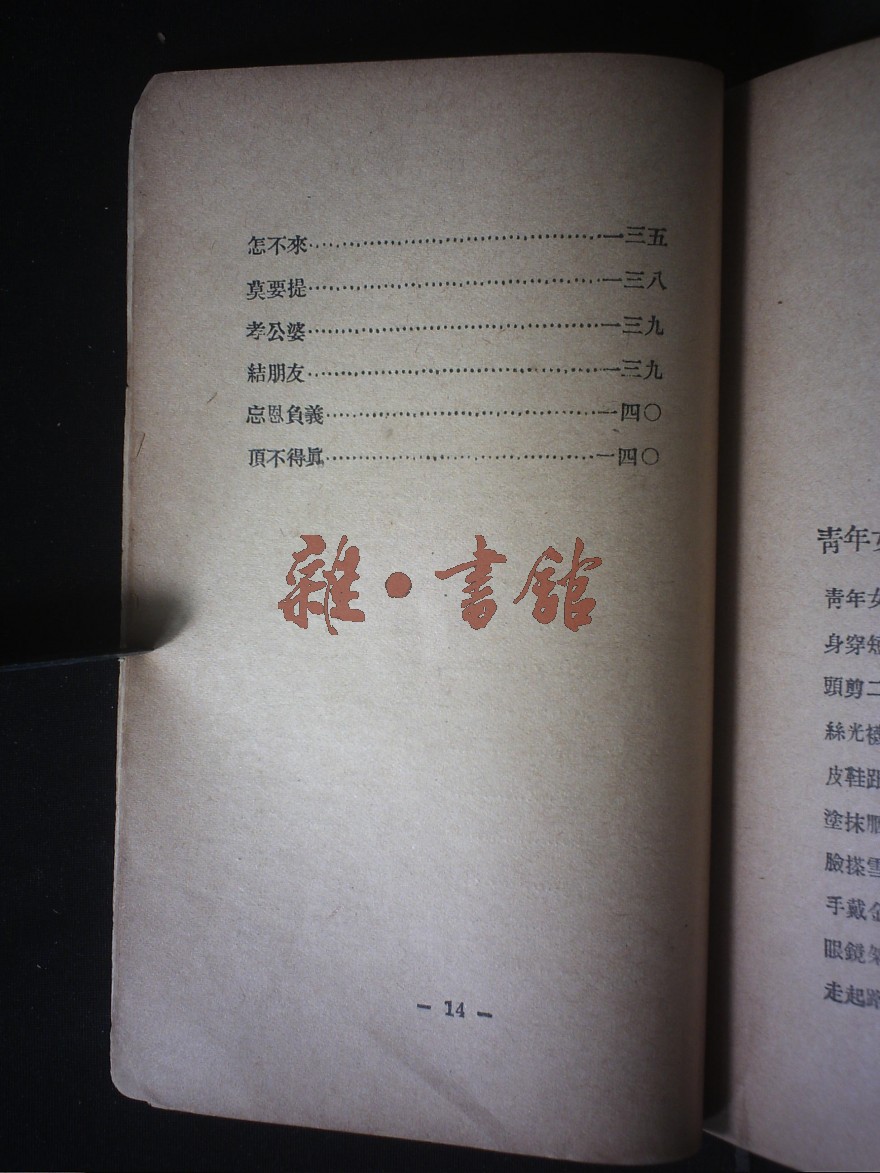 怎不來··············一三五
莫要提··············一三八
孝公婆··············一三九
結朋友··············一三九
忘恩負義··············一四〇
頂不得眞··············一四〇
雜·書館
– 14 –
青年
青年女
身穿短
頭剪二
絲光襪
皮鞋跟
塗抹胭
臉搽雪
手戴金
眼鏡架
走起路